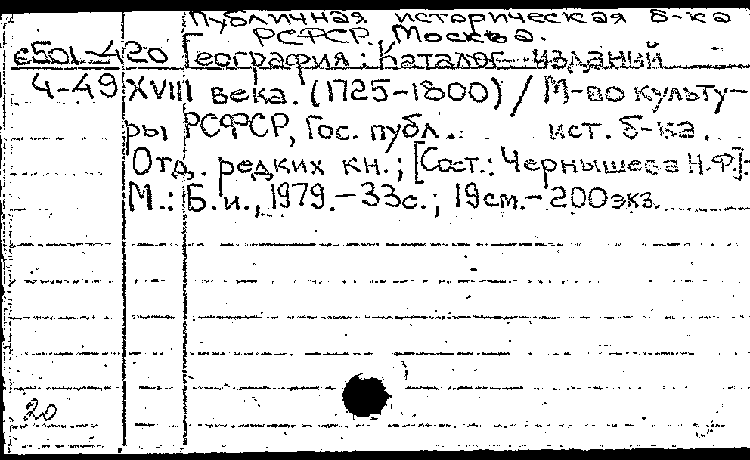 Публичная историческая б-ка
РСФСР, Москва.
е501-420 География: Каталог изданий
4-49 XVIII века. (1725-1800) / М-во культу-
ры РСФСР, Гос. публ. ист. б-ка.
Отд. редких кн.; [Сост.: Чернышева Н.Ф].
М.: Б.и., 1979.-33с.; 19см.-200экз.
20